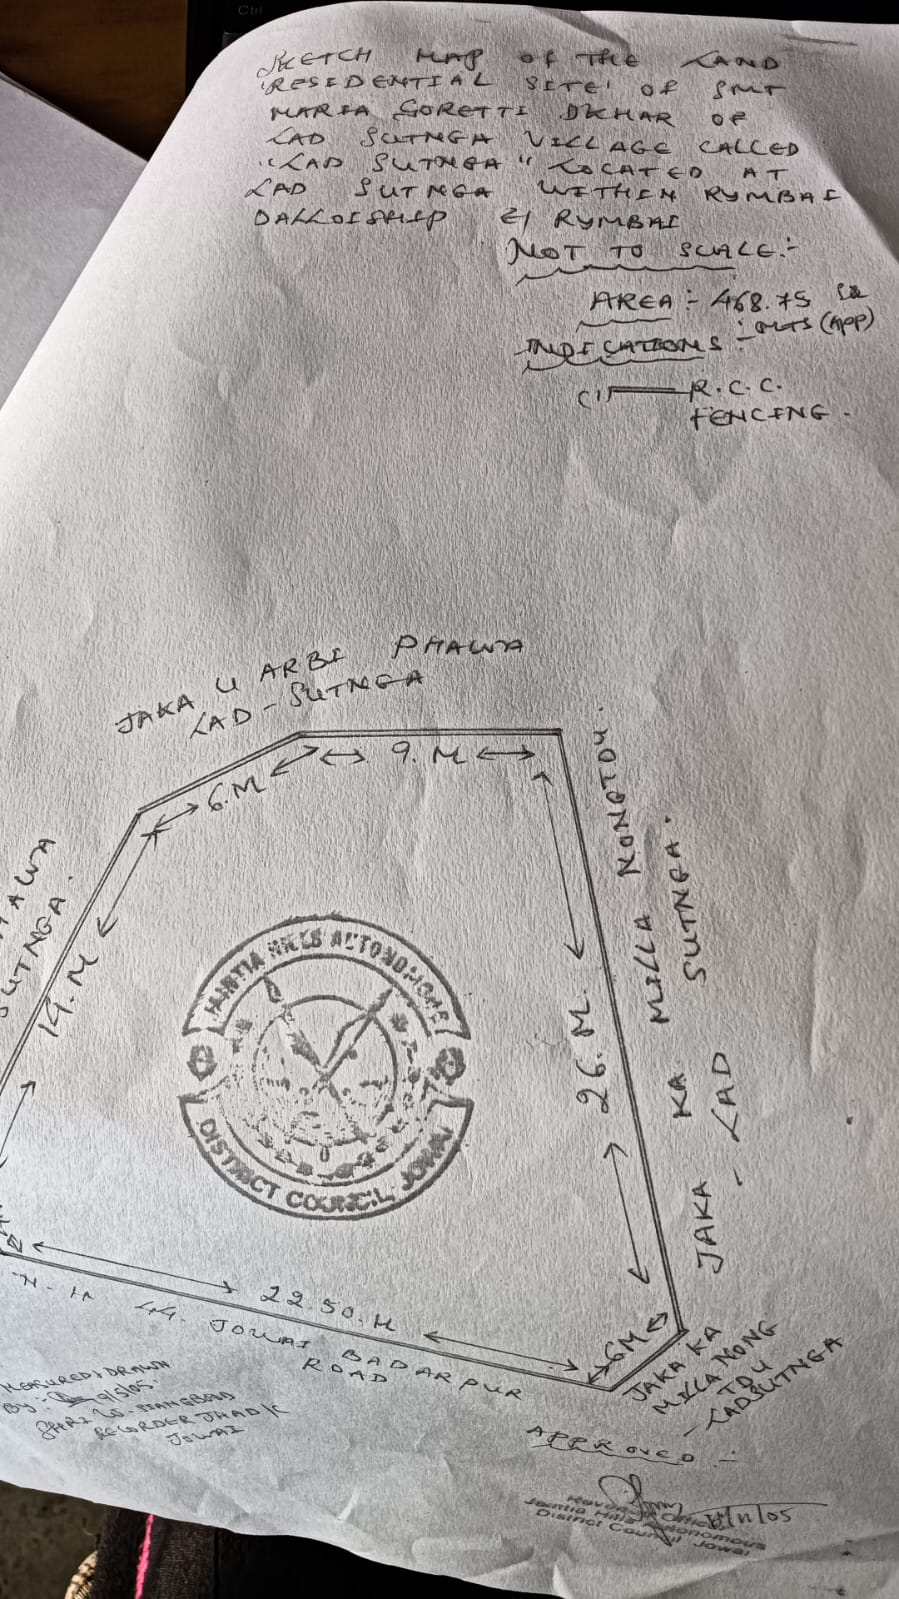 Ctrl
SKETCH MAP OF THE LAND
'RESIDENTIAL SITE' OF SMT
MARIA GORETTI DKHAR OF
LAD SUTNGA VILLAGE CALLED
"LAD SUTNGA" LOCATED AT
LAD SUTNGA WITHIN RYMBAI
DALLOISHIP EI RYMBAI
NOT TO SCALE:-
AREA:- 468.75 SQ
MTS (APP)
INDICATIONS:-
(1) R.C.C.
FENCING.
JAKA U ARBI PHAWA
LAD-SUTNGA
9.M
6.M
AWA
SUTNGA.
14.M
26.M.
JAKA KA MILLA NONGTDU.
LAD SUTNGA.
JAINTIA HILLS AUTONOMOUS
DISTRICT COUNCIL, JOWAI
22.50.M
44. JOWAI BADARPUR
ROAD
6M
JAKA KA
MILLA NONG
TDU
LADSUTNGA
MEASURED & DRAWN
By:- 9/5/05.
SHRI
RECORDER JHAD/C
JOWAI
APPROVED:-
/11/05
Revenue Officer
Jaintia Hills Autonomous
District Council Jowai